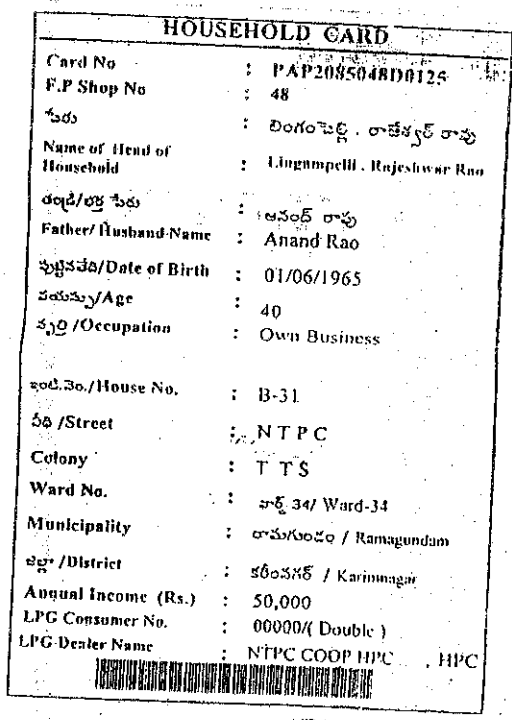 HOUSEHOLD CARD
Card No : PAP2085048D0125
F.P Shop No : 48
పేరు : లింగంపెల్లి . రాజేశ్వర్ రావు
Name of Head of
Household : Lingampelli . Rajeshwar Rao
తండ్రి/భర్త పేరు : ఆనంద్ రావు
Father/ Husband-Name : Anand Rao
పుట్టినతేది/Date of Birth : 01/06/1965
వయస్సు/Age : 40
వృత్తి /Occupation : Own Business
ఇంటి.నెం./House No. : B-31
వీధి /Street : N T P C
Colony : T T S
Ward No. : వార్డ్ 34/ Ward-34
Municipality : రామగుండం / Ramagundam
జిల్లా /District : కరీంనగర్ / Karimnagar
Annual Income (Rs.) : 50,000
LPG Consumer No. : 00000/( Double )
LPG-Dealer Name : NTPC COOP HPC , HPC